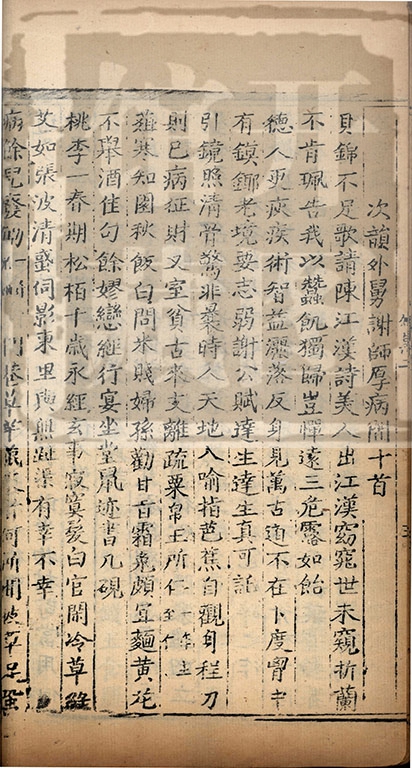 次韻外舅謝師厚病閒十首
貝錦不足歌請陳江漢詩美人出江漢窈窕世未窺折蘭
不肯珮告我以蠶飢獨歸豈憚遠三危露如飴
德人更疢疾術智益灑落反身見萬古道不在卜度胷中
有鏌鋣老境要志弱謝公賦達生達生真可託
引鏡照清骨驚非曩時人天地入喻指芭蕉自觀身程刀
則已病征財又室貧古來支離疏粟帛王所仁
薤寒知園秋飯白問米賤婦孫勸甘旨霜兔頗宜麵黃花
不舉酒佳句餘嫪戀經行宴坐堂鼠迹書几硯
桃李一春期松栢千歲永經玄事寂寞髮白官閒冷草雖
艾如張波清蠱伺影東里與無趾渠有幸不幸
病餘兒廢門草何所聞草足蛩